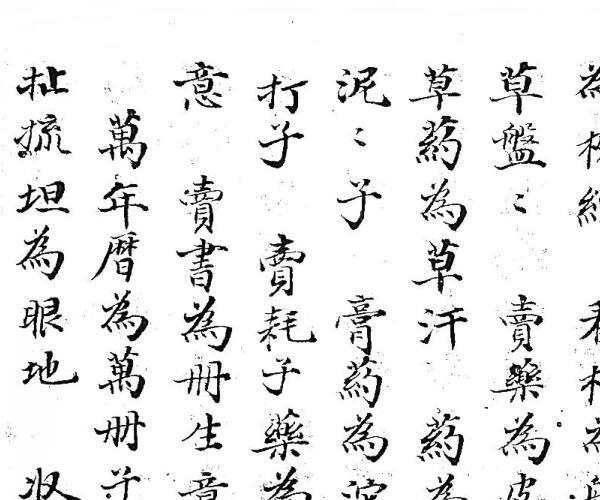 為
草盤〻　賣藥為皮
草葯為草汗　葯為
泥〻子　膏葯為
打子　賣耗子藥為
意　賣書為册生意
萬年曆為萬册子
扯坦為眼地　収